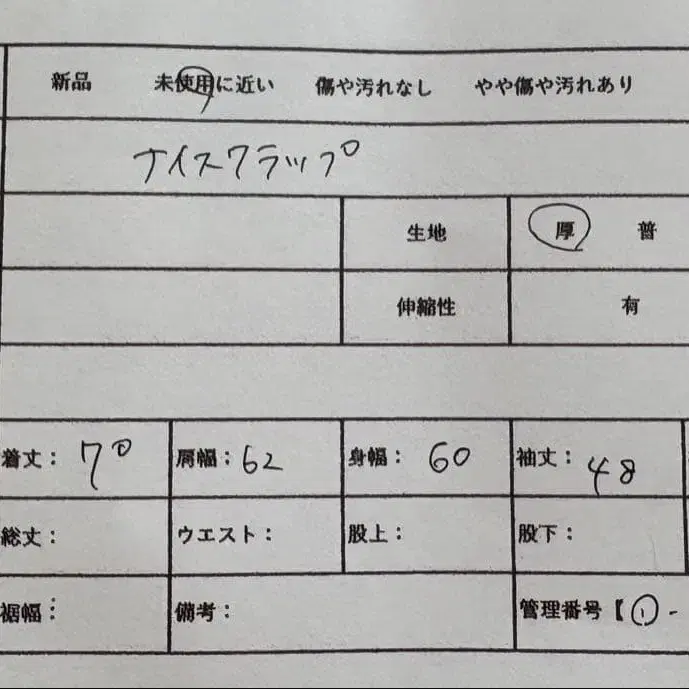 新品 未使用に近い 傷や汚れなし やや傷や汚れあり
ナイスクラップ
生地 厚 普
伸縮性 有
着丈： 70 肩幅： 62 身幅： 60 袖丈： 48
総丈： ウエスト： 股上： 股下：
裾幅： 備考： 管理番号【①-